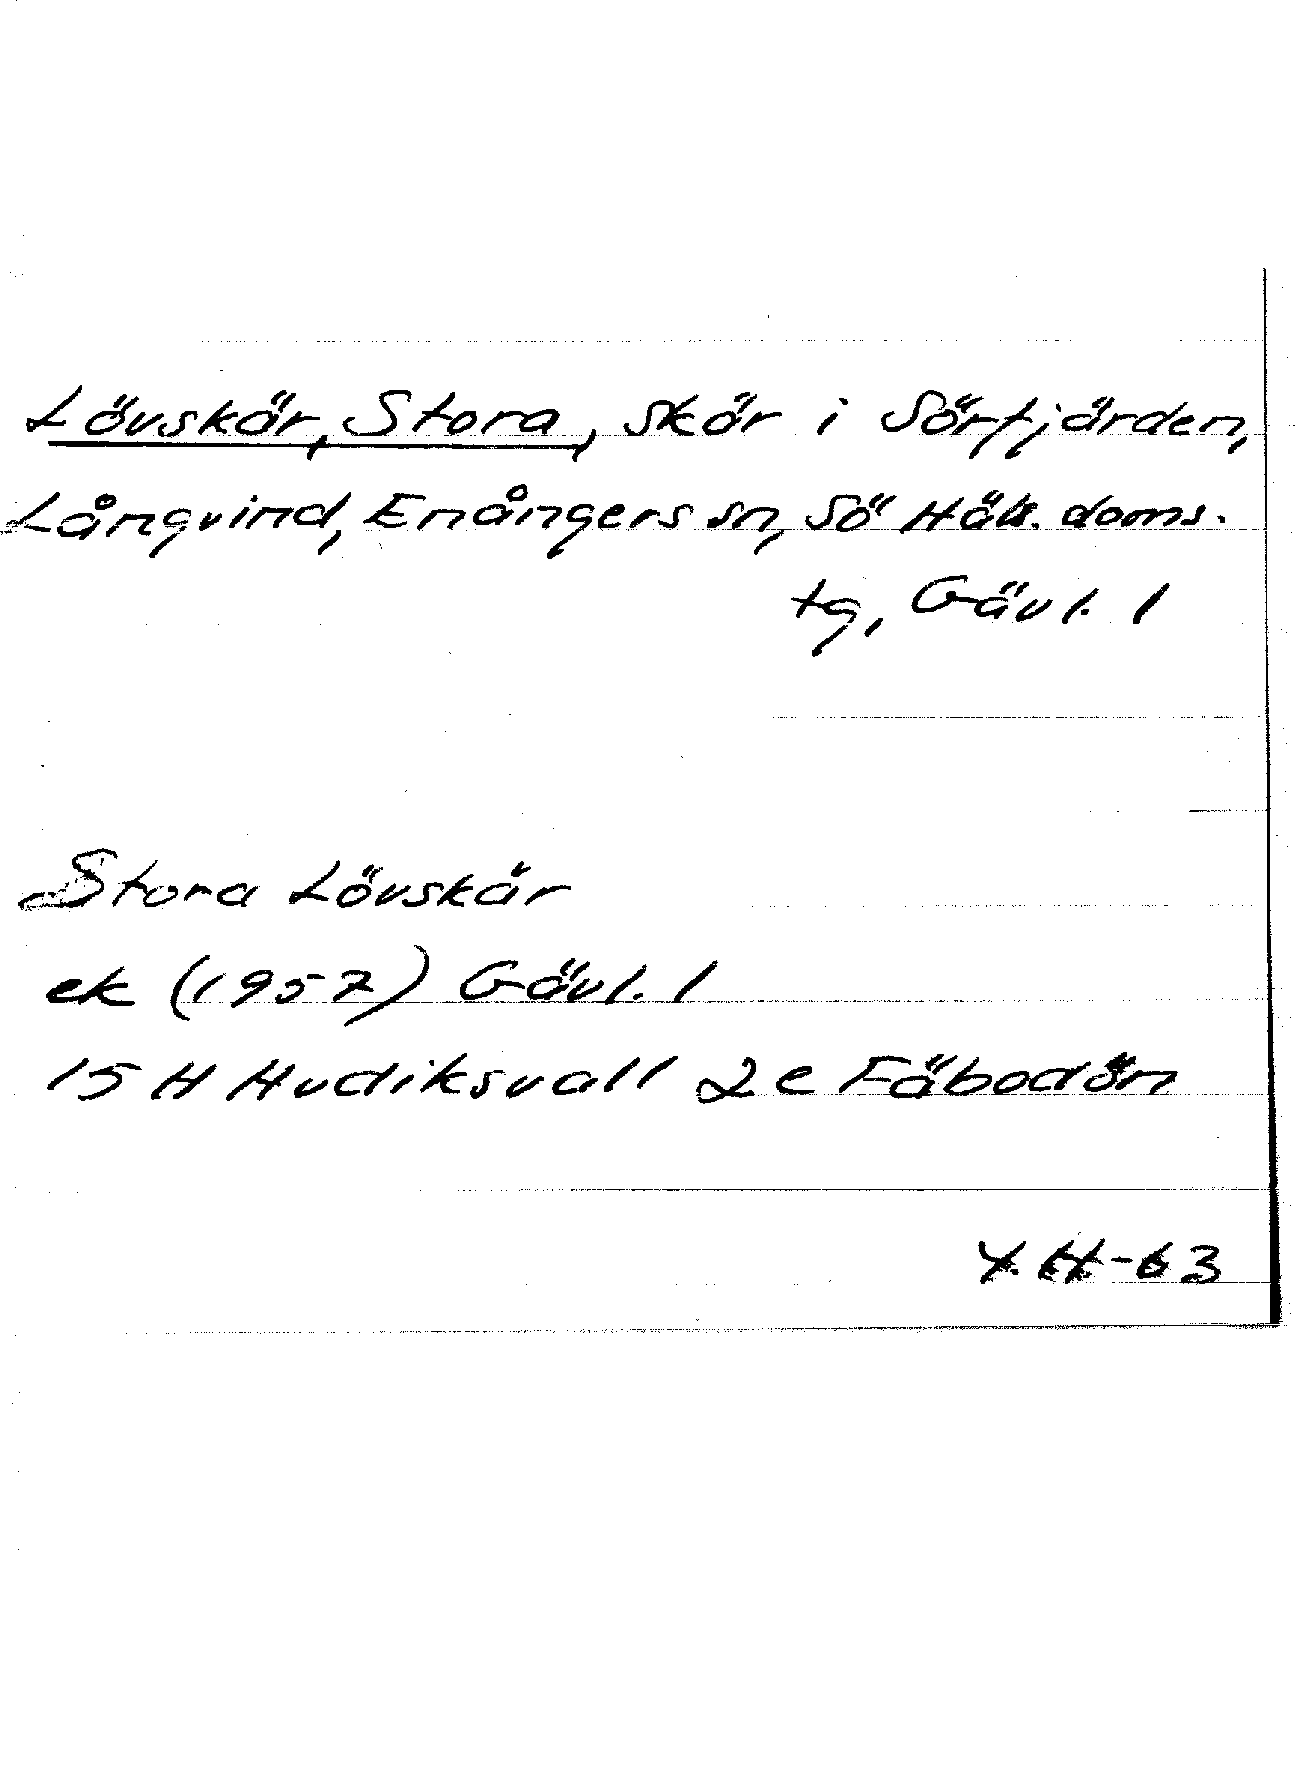 Lövskär, Stora, skär i Sörfjärden,
Långvind, Enångers sn, Sö Häls. doms.
tg, Gävl. l
Stora Lövskär
ek (1957) Gävl. l
15 H Hudiksvall 2e Fäbodön
-63